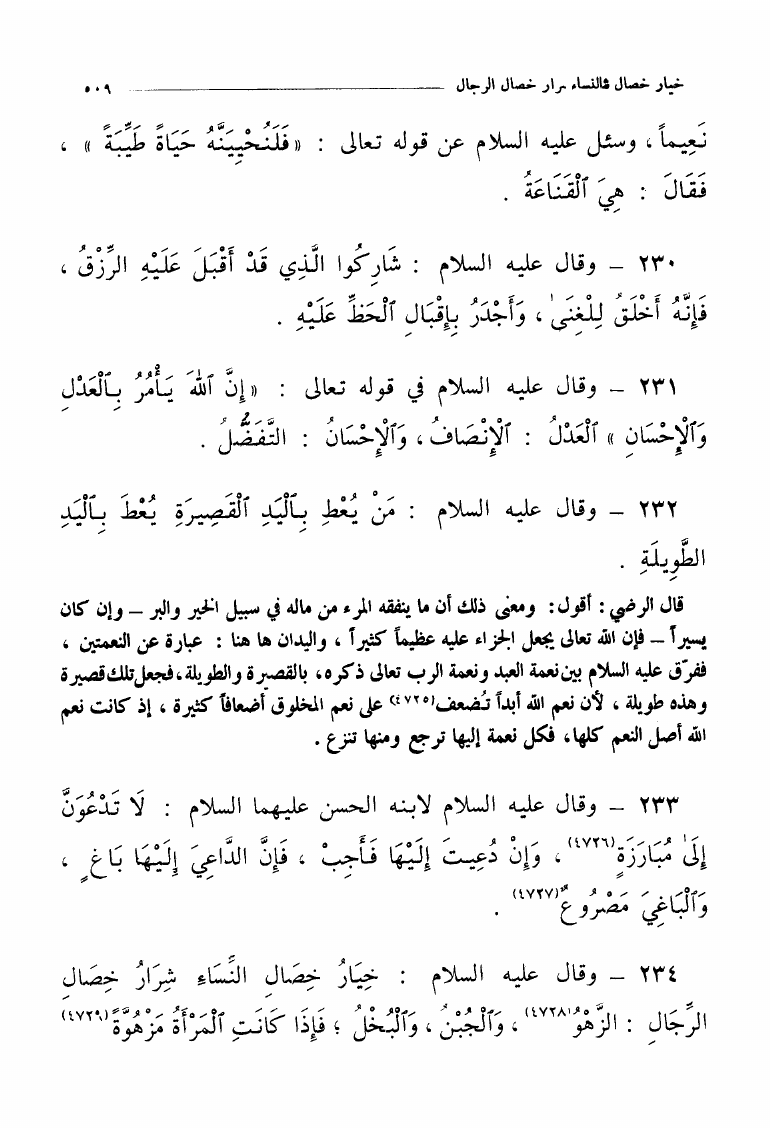 خيار خصال فالنساء برار خصال الرجال ٥٠٩
نَعِيماً ، وسئل عليه السلام عن قوله تعالى : « فَلَنُحْيِيَنَّهُ حَيَاةً طَيِّبَةً » ،
فَقَالَ : هِيَ ٱلْقَنَاعَةُ .
٢٣٠ – وقال عليه السلام : شَارِكُوا الَّذِي قَدْ أَقْبَلَ عَلَيْهِ الرِّزْقُ ،
فَإِنَّهُ أَخْلَقُ لِلْغِنَىٰ ، وَأَجْدَرُ بِإِقْبَالِ ٱلْحَظِّ عَلَيْهِ .
٢٣١ – وقال عليه السلام في قوله تعالى : « إِنَّ ٱللهَ يَأْمُرُ بِٱلْعَدْلِ
وَٱلْإِحْسَانِ » ٱلْعَدْلُ : ٱلْإِنْصَافُ ، وَٱلْإِحْسَانُ : التَّفَضُّلُ .
٢٣٢ – وقال عليه السلام : مَنْ يُعْطِ بِٱلْيَدِ ٱلْقَصِيرَةِ يُعْطَ بِٱلْيَدِ
الطَّوِيلَةِ .
قال الرضي : أقول : ومعنى ذلك أن ما ينفقه المرء من ماله في سبيل الخير والبر – وإن كان
يسيراً – فإن الله تعالى يجعل الجزاء عليه عظيماً كثيراً ، واليدان ها هنا : عبارة عن النعمتين ،
ففرّق عليه السلام بين نعمة العبد ونعمة الرب تعالى ذكره، بالقصيرة والطويلة، فجعل تلك قصيرة
وهذه طويلة ، لأن نعم الله أبداً تُضعف(٤٧٢٥) على نعم المخلوق أضعافاً كثيرة ، إذ كانت نعم
الله أصل النعم كلها، فكل نعمة إليها ترجع ومنها تنزع .
٢٣٣ – وقال عليه السلام لابنه الحسن عليهما السلام : لَا تَدْعُوَنَّ
إِلَىٰ مُبَارَزَةٍ(٤٧٢٦) ، وَإِنْ دُعِيتَ إِلَيْهَا فَأَجِبْ ، فَإِنَّ الدَّاعِيَ إِلَيْهَا بَاغٍ ،
وَٱلْبَاغِيَ مَصْرُوعٌ(٤٧٢٧) .
٢٣٤ – وقال عليه السلام : خِيَارُ خِصَالِ النِّسَاءِ شِرَارُ خِصَالِ
الرِّجَالِ : الزَّهْوُ(٤٧٢٨) ، وَٱلْجُبْنُ ، وَٱلْبُخْلُ ؛ فَإِذَا كَانَتِ ٱلْمَرْأَةُ مَزْهُوَّةً(٤٧٢٩)